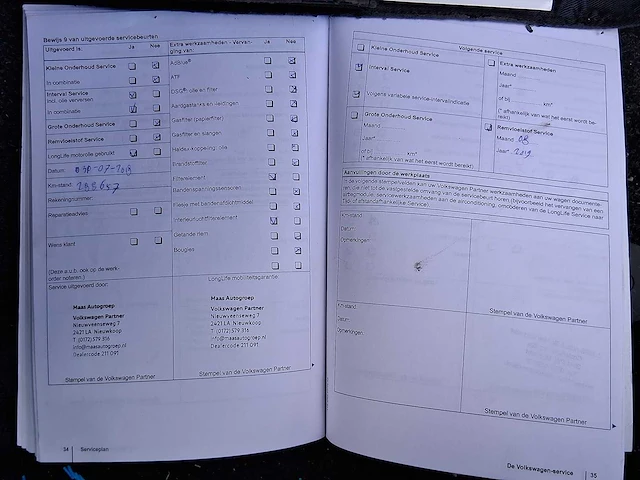 Bewijs 9 van uitgevoerde servicebeurten
Uitgevoerd is: Ja Nee
Kleine Onderhoud Service
In combinatie
Interval Service
Incl. olie verversen
In combinatie
Grote Onderhoud Service
Remvloeistof Service
LongLife motorolie gebruikt
Datum
Km-stand: 288657
Rekeningnummer:
Reparatieadvies
Wens klant
(Deze a.u.b. ook op de werk-
order noteren.)
Service uitgevoerd door:
Maas Autogroep
Volkswagen Partner
Nieuwveenseweg 7
2421 LA Nieuwkoop
T: (0172) 579 316
info@maasautogroep.nl
Dealercode 211 091
Stempel van de Volkswagen Partner
Extra werkzaamheden - Vervan-
ging van: Ja Nee
AdBlue®
ATF
DSG®-olie en filter
Aardgastanks en -leidingen
Gasfilter (papierfilter)
Gasfilter en slangen
Haldex-koppeling: olie
Brandstoffilter
Filterelement
Bandenspanningssensoren
Flesje met bandenafdichtmiddel
Interieurluchtfilterelement
Getande riem
Bougies
LongLife mobiliteitsgarantie:
Maas Autogroep
Volkswagen Partner
Nieuwveenseweg 7
2421 LA Nieuwkoop
T: (0172) 579 316
info@maasautogroep.nl
Dealercode 211 091
Stempel van de Volkswagen Partner
34 Serviceplan
Volgende service
Kleine Onderhoud Service
Interval Service
Volgens variabele service-intervalindicatie
Grote Onderhoud Service
Maand
Jaar*
of bij km*
(* afhankelijk van wat het eerst wordt bereikt)
Extra werkzaamheden
Maand
Jaar*
of bij km*
(* afhankelijk van wat het eerst wordt be-
reikt)
Remvloeistof Service
Maand 08
Jaar* 2019
Aanvullingen door de werkplaats
In de volgende stempelvelden kan uw Volkswagen Partner werkzaamheden aan uw wagen documente-
ren die niet tot de vastgestelde omvang van de service horen (bijvoorbeeld het vervangen van een
airbagmodule, servicewerkzaamheden aan de airconditioning, omcoderen van de LongLife Service naar
Tijd of afstandafhankelijke Service).
Km-stand:
Datum:
Opmerkingen:
Stempel van de Volkswagen Partner
Km-stand:
Datum:
Opmerkingen:
Stempel van de Volkswagen Partner
De Volkswagen-service 35